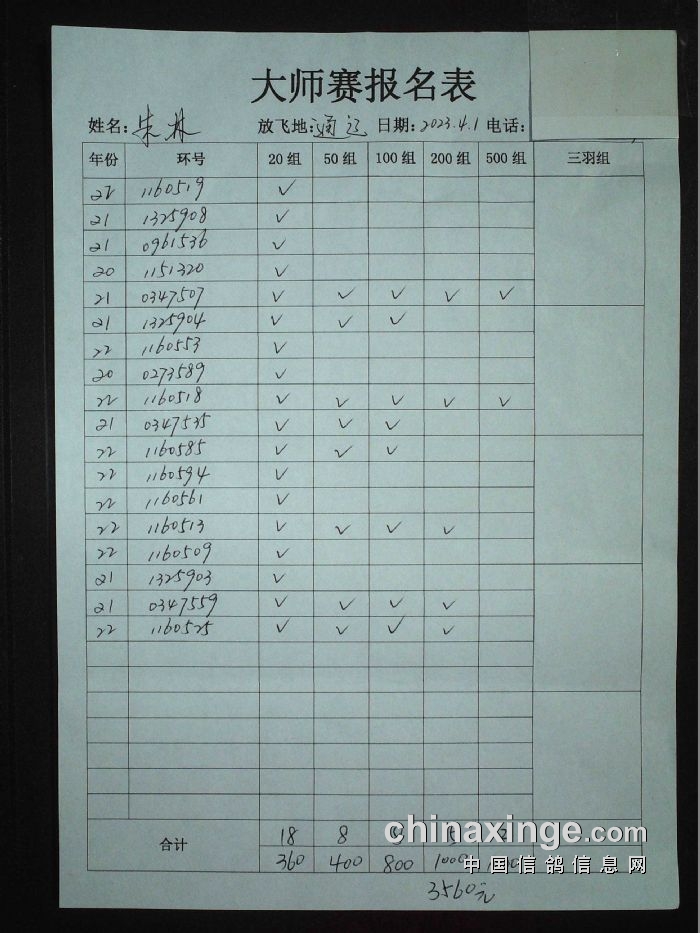 大师赛报名表
姓名: 朱林 放飞地: 通辽 日期: 2023.4.1 电话:
年份 环号 20组 50组 100组 200组 500组 三羽组
22 1160519 ✓
21 1325908 ✓
21 0961536 ✓
20 1151320 ✓
21 0347507 ✓ ✓ ✓ ✓ ✓
21 1325904 ✓ ✓ ✓
22 1160553 ✓
20 0273589 ✓
22 1160518 ✓ ✓ ✓ ✓ ✓
21 0347535 ✓ ✓ ✓
22 1160585 ✓ ✓ ✓
22 1160594 ✓
22 1160561 ✓
22 1160513 ✓ ✓ ✓ ✓
22 1160509 ✓
21 1325903 ✓
21 0347559 ✓ ✓ ✓ ✓
22 1160525 ✓ ✓ ✓ ✓
合计 18 8 5
360 400 800 1000
chinaxinge.com
中国信鸽信息网
3560元